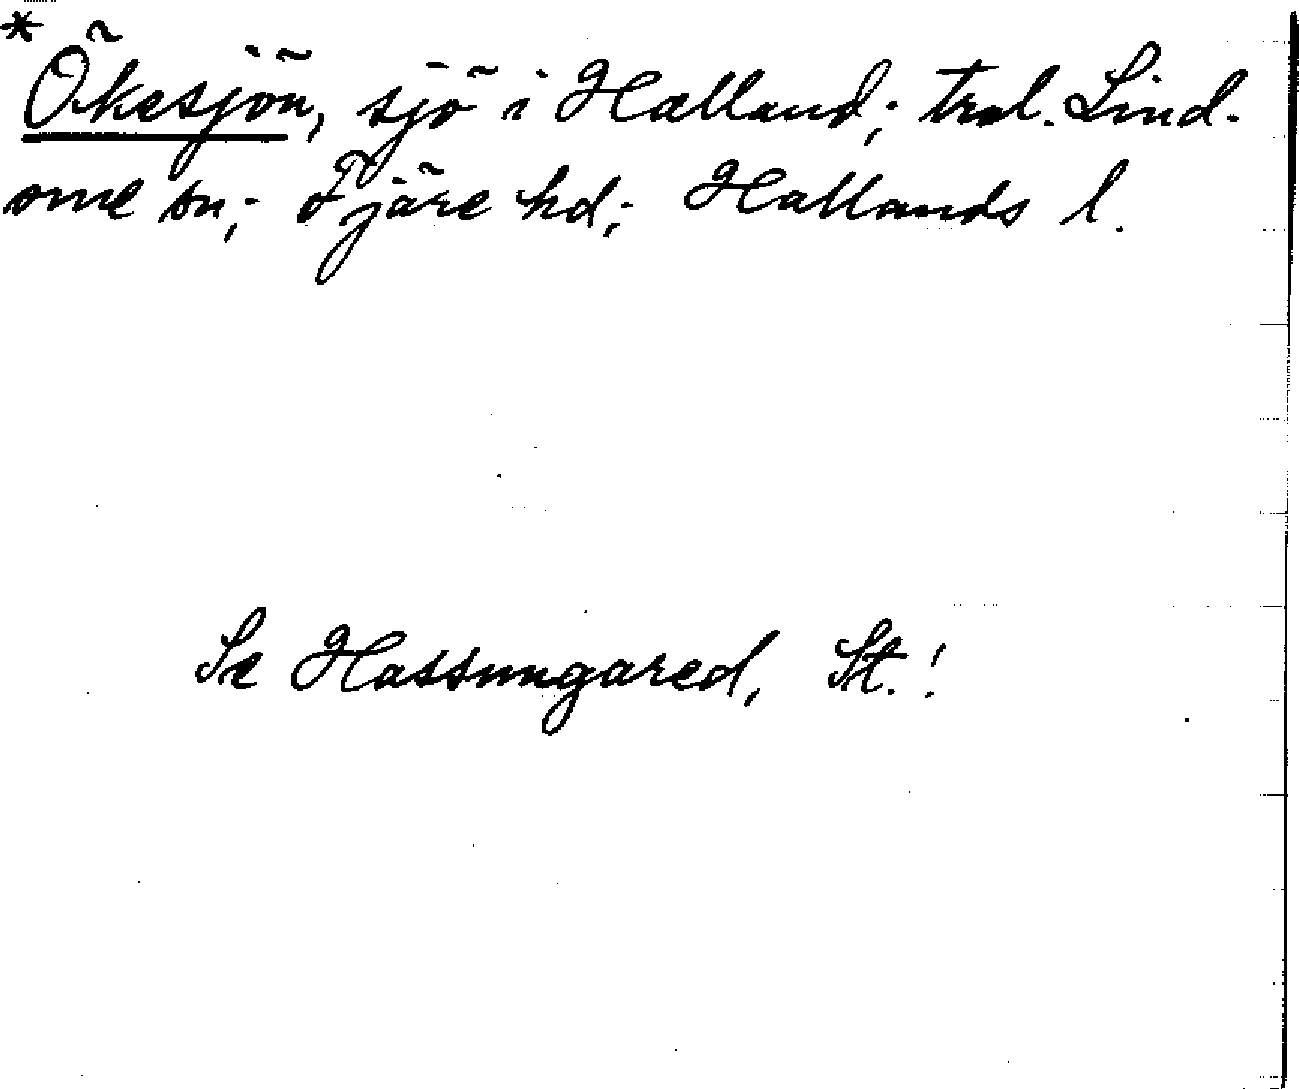 *Ökesjön, sjö i Halland; trol. Lind-
ome sn; Fjäre hd; Hallands l.
Se Hassungared, St.!